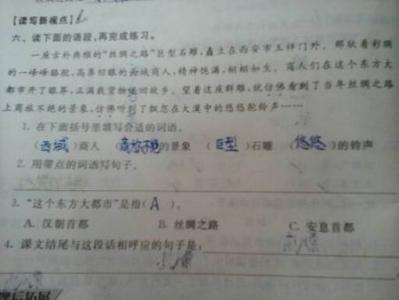 【读写新视点】
六、读下面的语段,再完成练习。
一座古朴典雅的“丝绸之路”巨型石雕,矗立在西安市玉祥门外。那驮着彩绸
的一峰峰骆驼,高鼻凹眼的西域商人,精神饱满,栩栩如生。商人们在这个东方大
都市开了眼界,正满载货物返回故乡。望着这座群雕,就仿佛看到了当年丝绸之路
上商旅不绝的景象,仿佛听到了飘忽在大漠中的悠悠驼铃声……
1. 在下面括号里填写合适的词语。
(西域)商人 (商旅不绝)的景象 (巨型)石雕 (悠悠)的铃声
2. 用带点的词语写句子。
3. “这个东方大都市”是指( A )。
A. 汉朝首都 B. 丝绸之路 C. 安息首都
4. 课文结尾与这段话相呼应的句子是:
课后拓展